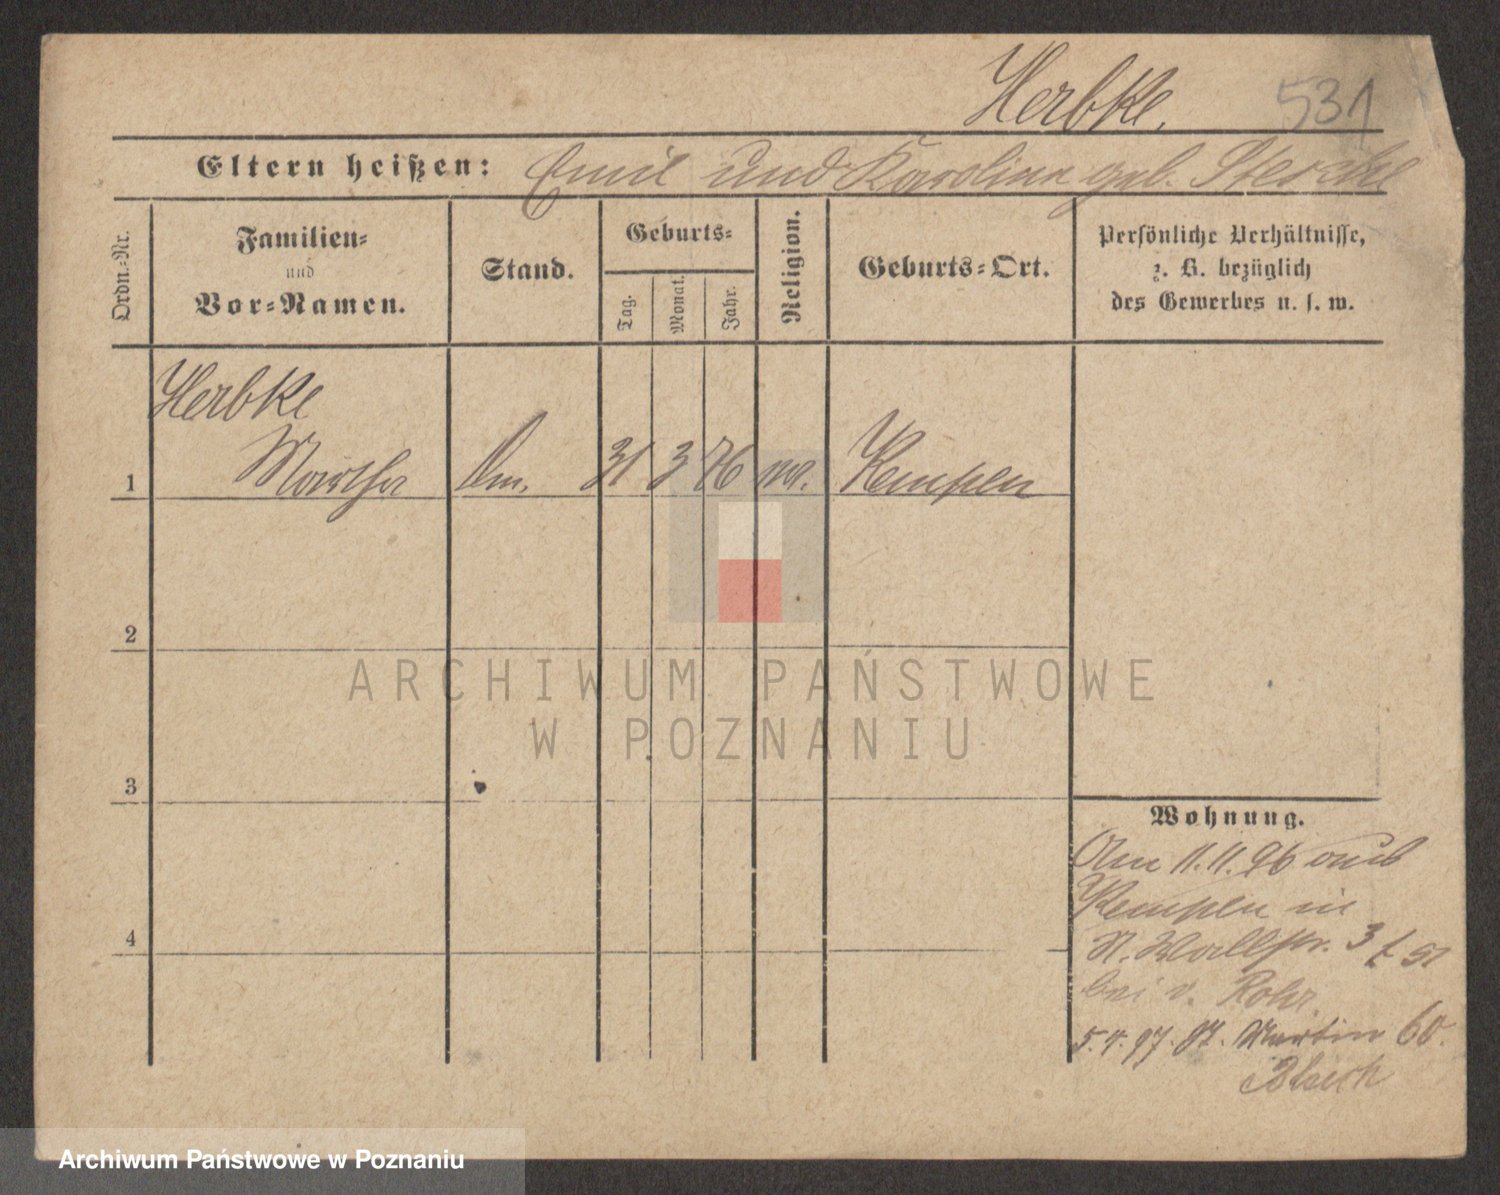 Herbke.
531
Eltern heißen: Emil und Karolina geb.
Ordn.=Nr.
Familien=
und
Vor=Namen.
Stand.
Geburts=
Tag.
Monat.
Jahr.
Religion.
Geburts=Ort.
Persönliche Verhältnisse,
z. B. bezüglich
des Gewerbes u. s. w.
Herbke
1 Martha 31 3 76 Kempen
2
3
4
Wohnung.
Am 11.11.96 aus
Kempen in
Wallstr. 3
bei v. Rohr
5.4.97. St. Martin 60.
ARCHIWUM PAŃSTWOWE
W POZNANIU
Archiwum Państwowe w Poznaniu